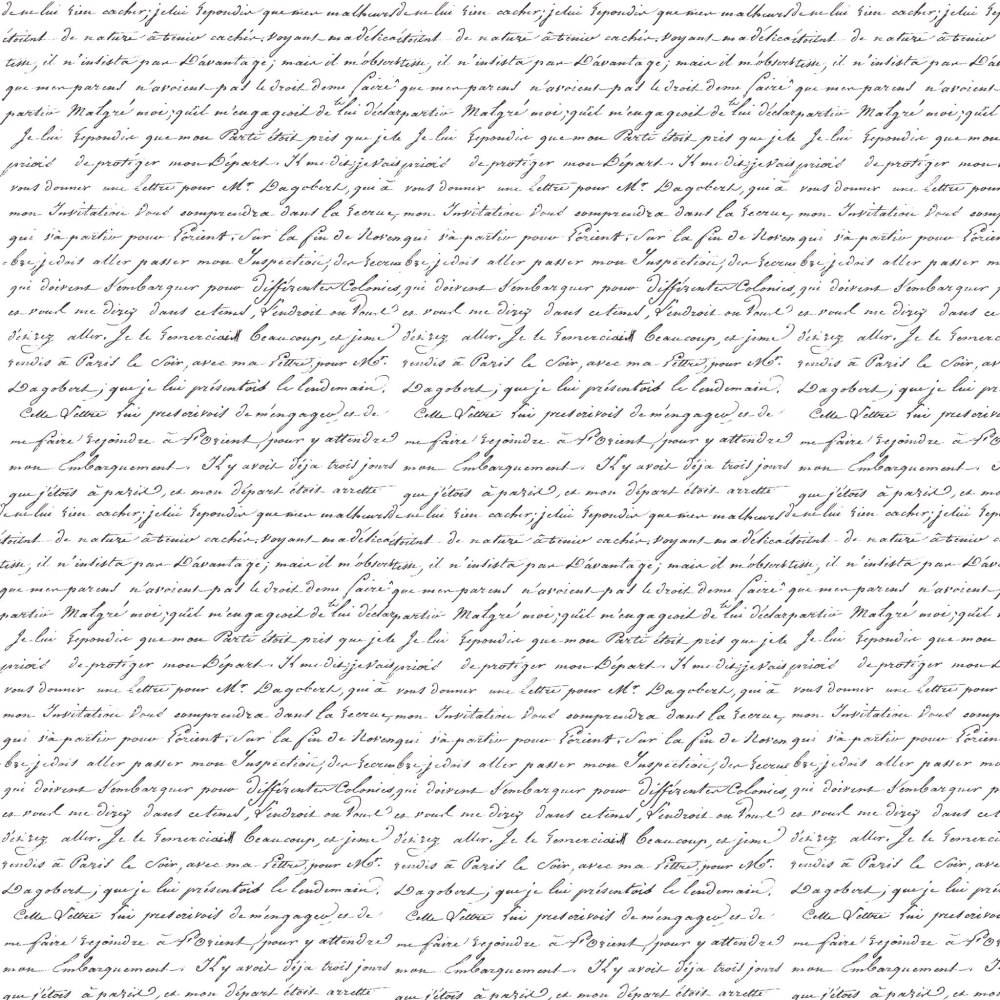 de ne lui rien cacher; je lui repondis que mes malheurs de ne lui rien cacher; je lui repondis que mes malheurs de ne lui rien cacher; je lui
étoient de nature à tenir cachés. voyant ma délica étoient de nature à tenir cachés. voyant ma délica étoient de nature à tenir
tesse, il n'insista pas d'avantage; mais il m'observ tesse, il n'insista pas d'avantage; mais il m'observ tesse, il n'insista pas D'ava
que mes parens n'avoient pas le droit de me faire que mes parens n'avoient pas le droit de me faire que mes parens n'avoient
partir Malgré moi; qu'il m'engageoit de lui déclar partir Malgré moi; qu'il m'engageoit de lui déclar partir Malgré moi; qu'il
Je lui repondis que mon Parti étoit pris que je le Je lui repondis que mon Parti étoit pris que je le Je lui repondis que mon
priois de protéger mon Départ. Il me dit; je vais priois de protéger mon Départ. Il me dit; je vais priois de protéger mon
vous donner une Lettre pour Mr. Dagobert, qui à vous donner une Lettre pour Mr. Dagobert, qui à vous donner une Lettre pour
mon Invitation vous comprendra dans la recrue, mon Invitation vous comprendra dans la recrue, mon Invitation vous comp
qui va partir pour l'orient. Sur la fin de Novem qui va partir pour l'orient. Sur la fin de Novem qui va partir pour l'orien
bre, je dois aller passer mon Inspection, des recrues bre, je dois aller passer mon Inspection, des recrues bre, je dois aller passer m
qui doivent s'embarquer pour différentes Colonies, qui doivent s'embarquer pour différentes Colonies, qui doivent s'embarquer p
et vous me direz dans ce tems, l'endroit ou vous et vous me direz dans ce tems, l'endroit ou vous et vous me direz dans ce
désirez aller. Je le remerciais Beaucoup, et je me désirez aller. Je le remerciais Beaucoup, et je me désirez aller. Je le remerc
rendis à Paris le Soir, avec ma lettre, pour Mr. rendis à Paris le Soir, avec ma lettre, pour Mr. rendis à Paris le Soir, av
Dagobert, que je lui présentois le lendemain. Dagobert, que je lui présentois le lendemain. Dagobert, que je lui pr
Cette Lettre lui prescrivoit de m'engager, et de Cette Lettre lui prescrivoit de m'engager, et de Cette Lettre lui prescriv
me faire rejoindre à l'Orient, pour y attendre me faire rejoindre à l'Orient, pour y attendre me faire rejoindre à l'O
mon Embarquement. Il y avoit déja trois jours mon Embarquement. Il y avoit déja trois jours mon Embarquement.
que j'étois à paris, et mon départ étoit arretté que j'étois à paris, et mon départ étoit arretté que j'étois à paris, et m
de ne lui rien cacher; je lui repondis que mes malheurs de ne lui rien cacher; je lui repondis que mes malheurs de ne lui rien cacher; je lui rep
étoient de nature à tenir cachés. voyant ma délica étoient de nature à tenir cachés. voyant ma délica étoient de nature à tenir c
tesse, il n'insista pas d'avantage; mais il m'observ tesse, il n'insista pas d'avantage; mais il m'observ tesse, il n'insista pas D'av
que mes parens n'avoient pas le droit de me faire que mes parens n'avoient pas le droit de me faire que mes parens n'avoient
partir Malgré moi; qu'il m'engageoit de lui déclar partir Malgré moi; qu'il m'engageoit de lui déclar partir Malgré moi; qu'il
Je lui repondis que mon Parti étoit pris que je le Je lui repondis que mon Parti étoit pris que je le Je lui repondis que mon
priois de protéger mon Départ. Il me dit; je vais priois de protéger mon Départ. Il me dit; je vais priois de protéger mon
vous donner une Lettre pour Mr. Dagobert, qui à vous donner une Lettre pour Mr. Dagobert, qui à vous donner une Lettre pour
mon Invitation vous comprendra dans la recrue, mon Invitation vous comprendra dans la recrue, mon Invitation vous comp
qui va partir pour l'orient. Sur la fin de Novem qui va partir pour l'orient. Sur la fin de Novem qui va partir pour l'orien
bre, je dois aller passer mon Inspection, des recrues bre, je dois aller passer mon Inspection, des recrues bre, je dois aller passer mo
qui doivent s'embarquer pour différentes Colonies, qui doivent s'embarquer pour différentes Colonies, qui doivent s'embarquer p
et vous me direz dans ce tems, l'endroit ou vous et vous me direz dans ce tems, l'endroit ou vous et vous me direz dans ce
désirez aller. Je le remerciais Beaucoup, et je me désirez aller. Je le remerciais Beaucoup, et je me désirez aller. Je le remerc
rendis à Paris le Soir, avec ma lettre, pour Mr. rendis à Paris le Soir, avec ma lettre, pour Mr. rendis à Paris le Soir, ave
Dagobert, que je lui présentois le lendemain. Dagobert, que je lui présentois le lendemain. Dagobert, que je lui pré
Cette Lettre lui prescrivoit de m'engager, et de Cette Lettre lui prescrivoit de m'engager, et de Cette Lettre lui prescrivo
me faire rejoindre à l'Orient, pour y attendre me faire rejoindre à l'Orient, pour y attendre me faire rejoindre à l'O
mon Embarquement. Il y avoit déja trois jours mon Embarquement. Il y avoit déja trois jours mon Embarquement.
que j'étois à paris, et mon départ étoit arretté que j'étois à paris, et mon départ étoit arretté que j'étois à paris, et mo